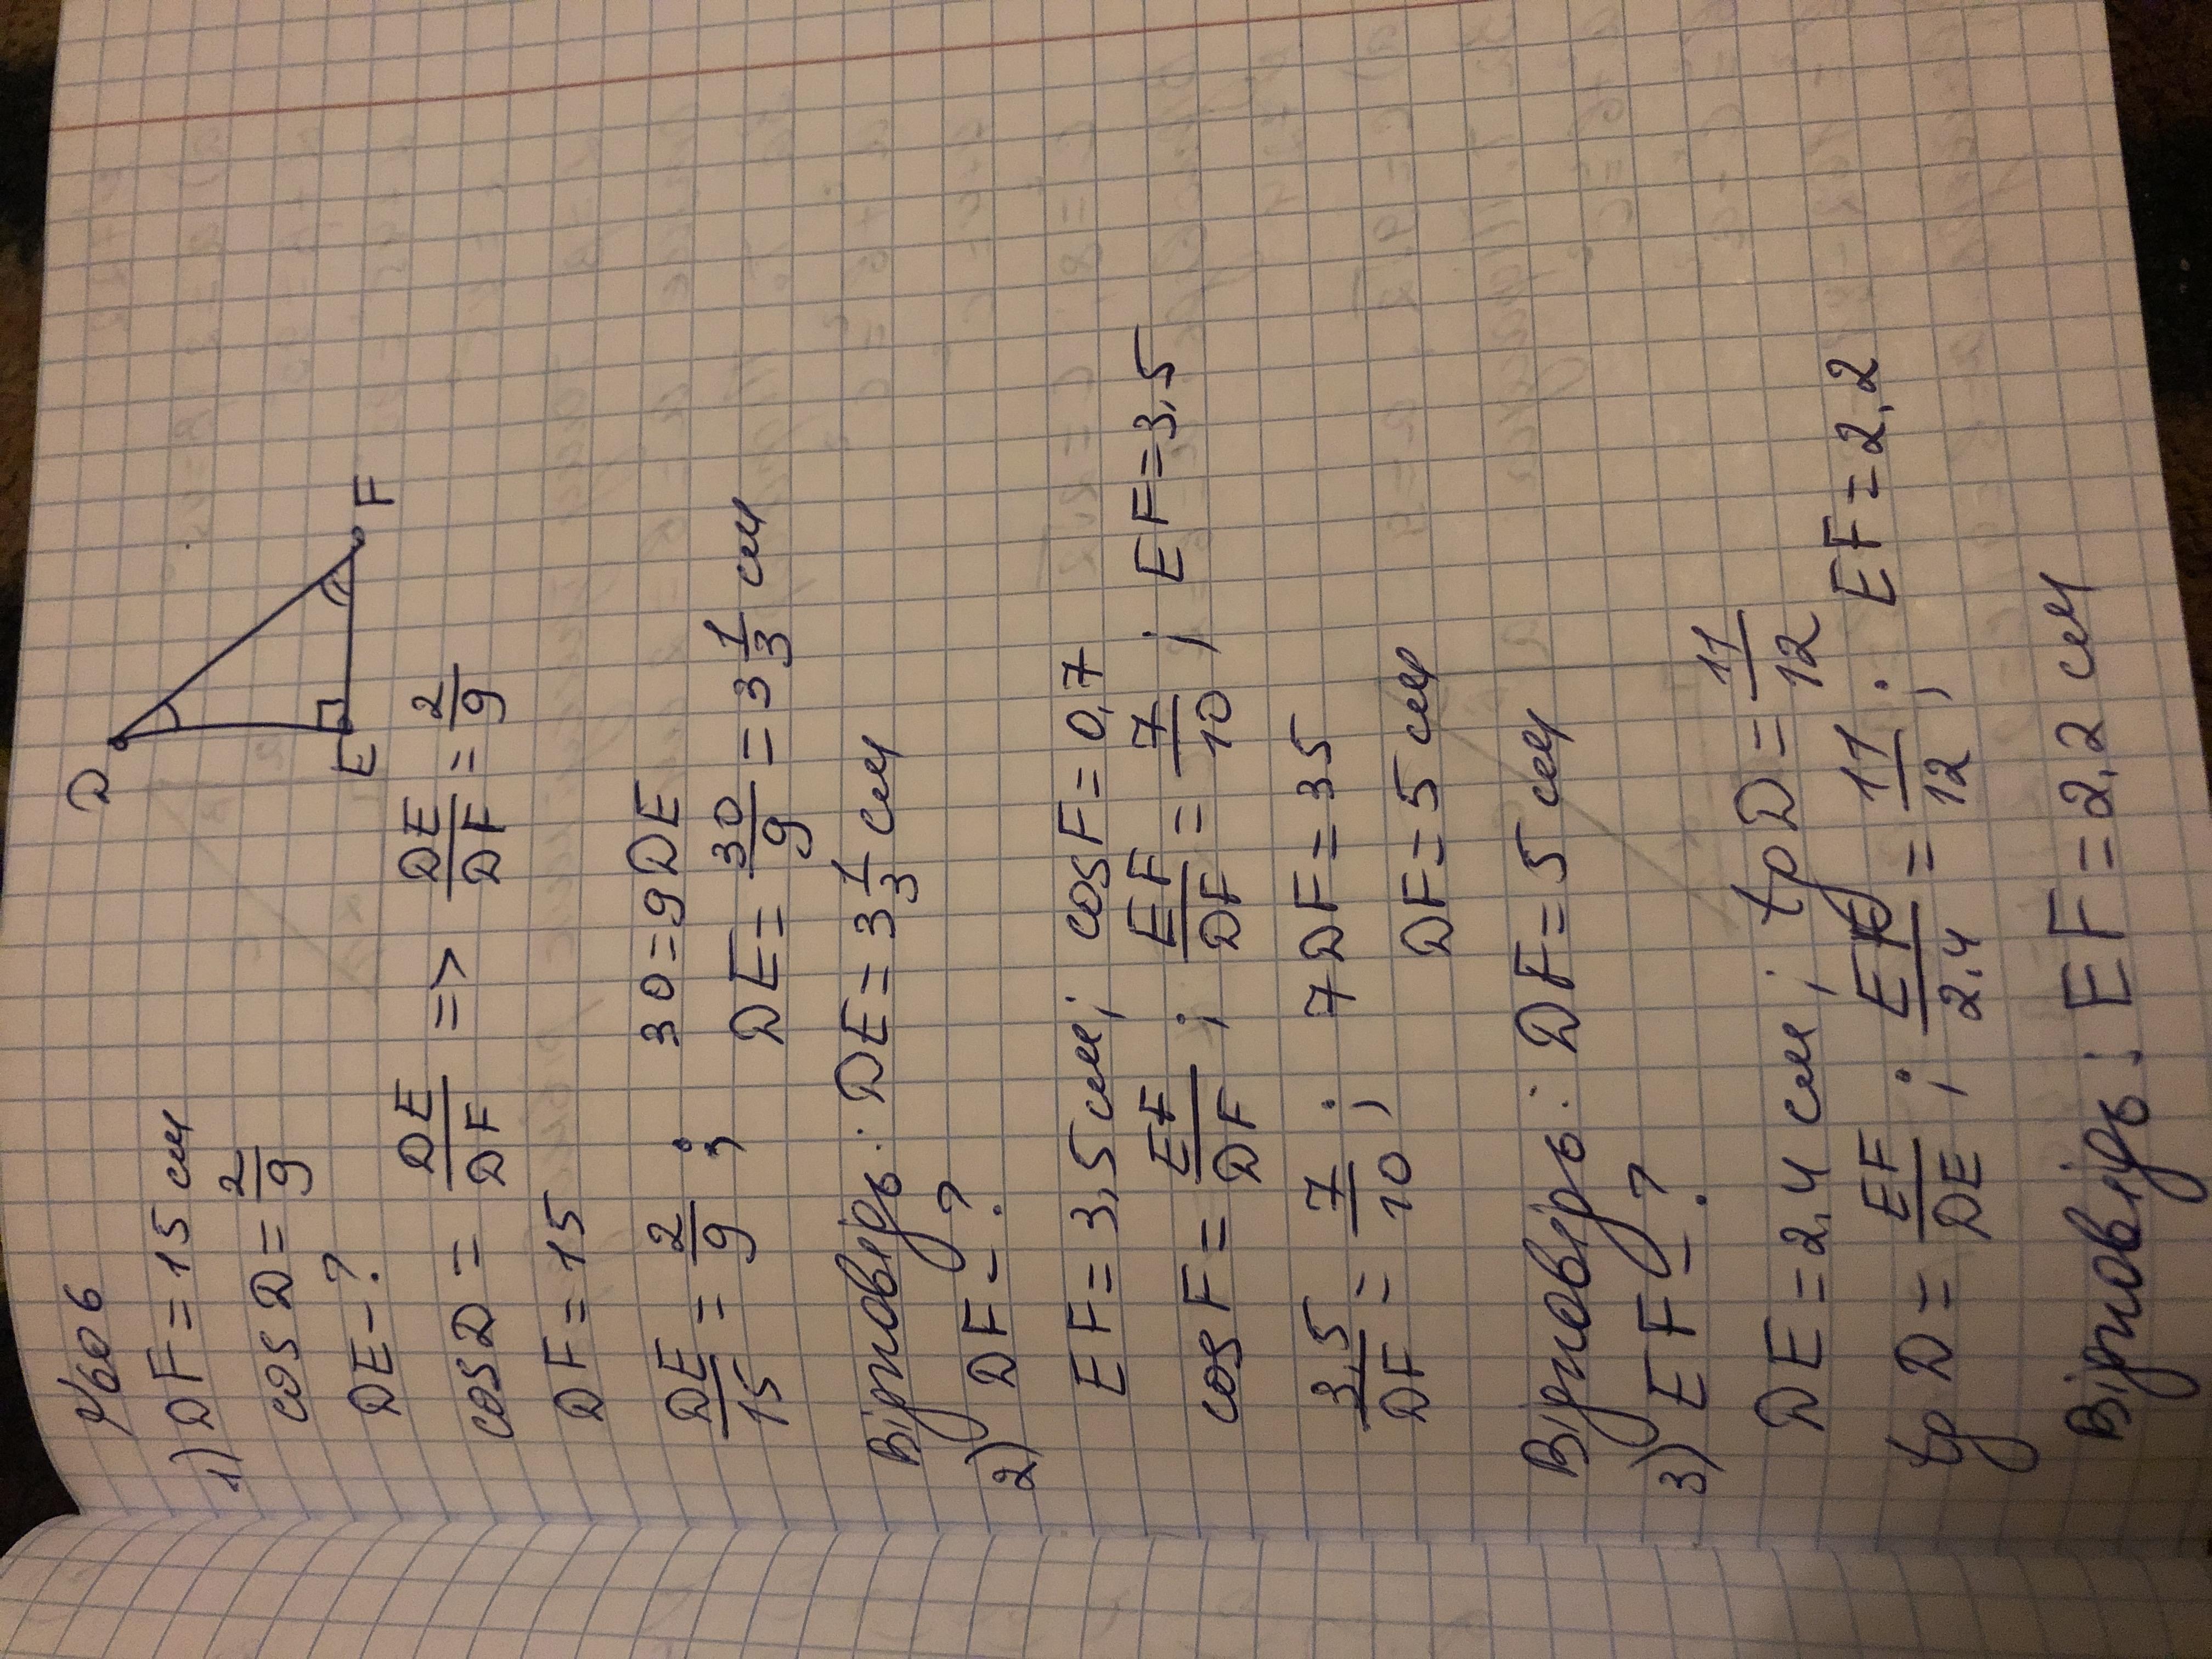 №606
D
E
F
1) DF = 15 см
cos D = 2/9
DE - ?
cos D = DE/DF => DE/DF = 2/9
DF = 15
DE/15 = 2/9 ; 30 = 9DE
DE = 30/9 = 3 1/3 см
Відповідь: DE = 3 1/3 см
2) DF - ?
EF = 3,5 см; cos F = 0,7
cos F = EF/DF ; EF/DF = 7/10 ; EF = 3,5
3,5/DF = 7/10 ; 7DF = 35
DF = 5 см
Відповідь: DF = 5 см
3) EF - ?
DE = 2,4 см ; tg D = 11/12
tg D = EF/DE ; EF/2,4 = 11/12 ; EF = 2,2
Відповідь: EF = 2,2 см